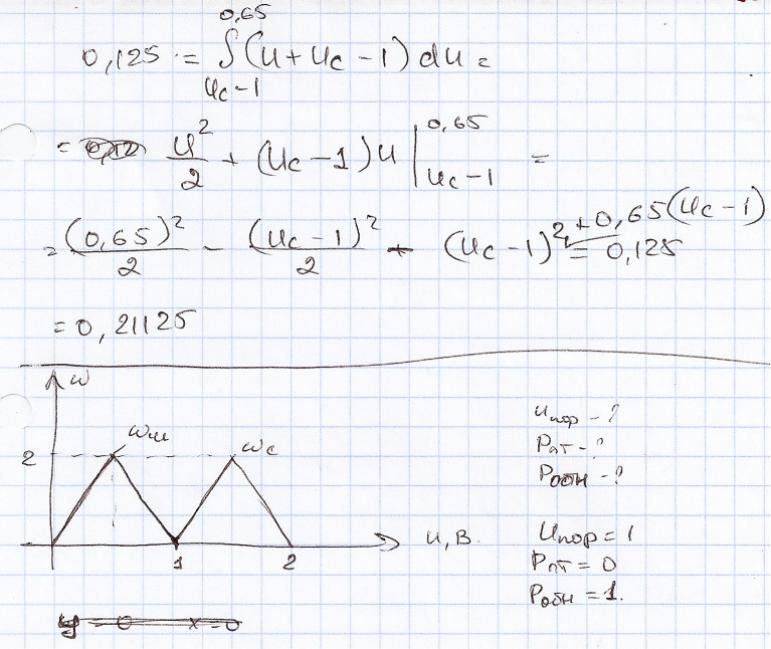 0,125 = ∫_{u_c-1}^{0,65} (u + u_c - 1) du =
= u²/2 + (u_c - 1)u |_{u_c-1}^{0,65} =
= (0,65)²/2 - (u_c - 1)²/2 - (u_c - 1)² + 0,65(u_c - 1) = 0,125
= 0,21125
ω
ω_ш ω_c
2
1 2 u, В.
u_пор - ?
P_лт - ?
P_обн - ?
u_пор = 1
P_лт = 0
P_обн = 1.